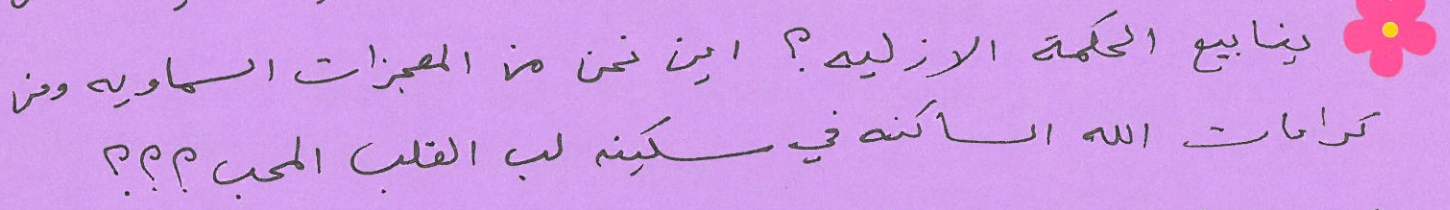 ينابيع الحكمة الازليه؟ اين نحن من المعجزات السماويه ومن
كرامات الله الساكنه في سكينه لب القلب المحب؟؟؟